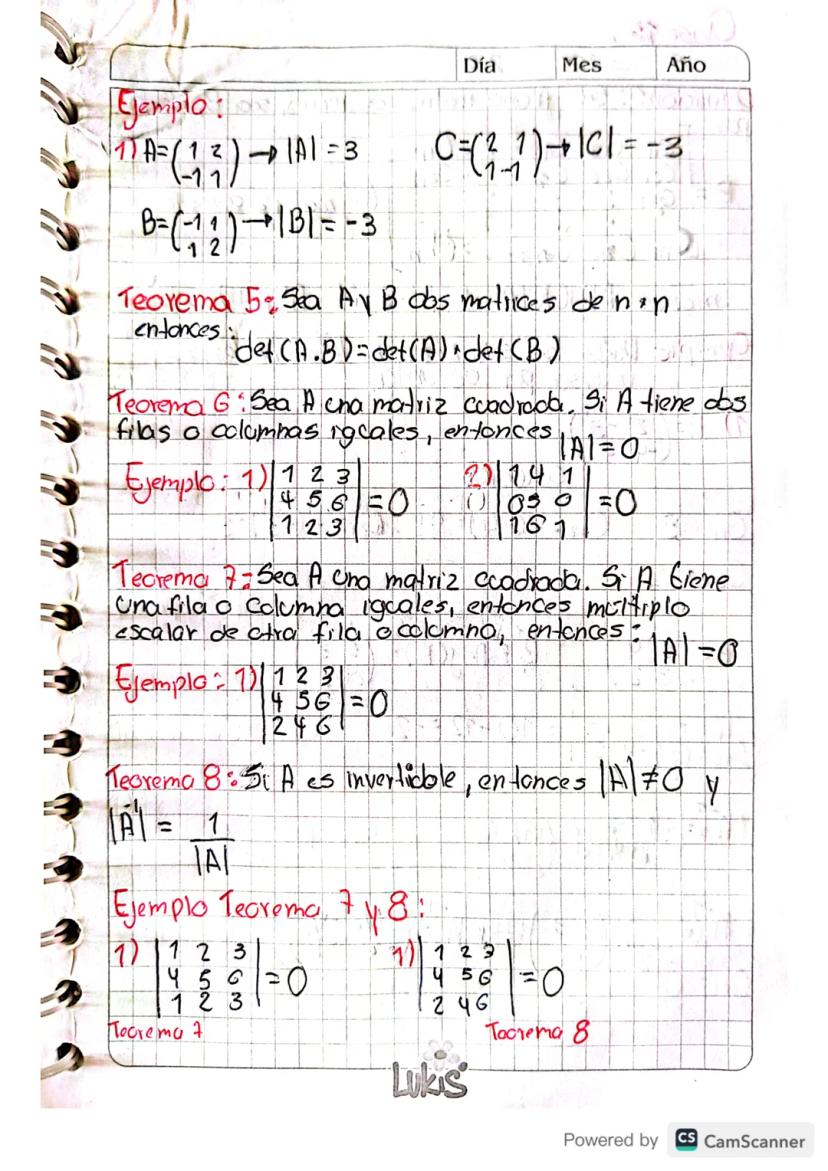 Día Mes Año
Ejemplo:
1) A=(1 2 -1 1) → |A| = 3 C=(2 1 1 -1) → |C| = -3
B=(-1 1 1 2) → |B| = -3
Teorema 5: Sea A y B dos matrices de n·n
entonces:
det(A.B)=det(A)·det(B)
Teorema 6: Sea A una matriz cuadrada. Si A tiene dos
filas o columnas iguales, entonces |A|=0
Ejemplo: 1) |1 2 3| 2) |1 4 1|
|4 5 6| =0 |0 5 0| =0
|1 2 3| |1 6 1|
Teorema 7: Sea A una matriz cuadrada. Si A tiene
una fila o columna iguales, entonces múltiplo
escalar de otra fila o columna, entonces: |A| =0
Ejemplo: 1) |1 2 3|
|4 5 6| =0
|2 4 6|
Teorema 8: Si A es invertible, entonces |A|≠0 y
|A⁻¹| = 1
|A|
Ejemplo Teorema 7 y 8:
1) |1 2 3| 1) |1 2 3|
|4 5 6| =0 |4 5 6| =0
|1 2 3| |2 4 6|
Teorema 7 Teorema 8
Lukis
Powered by CS CamScanner